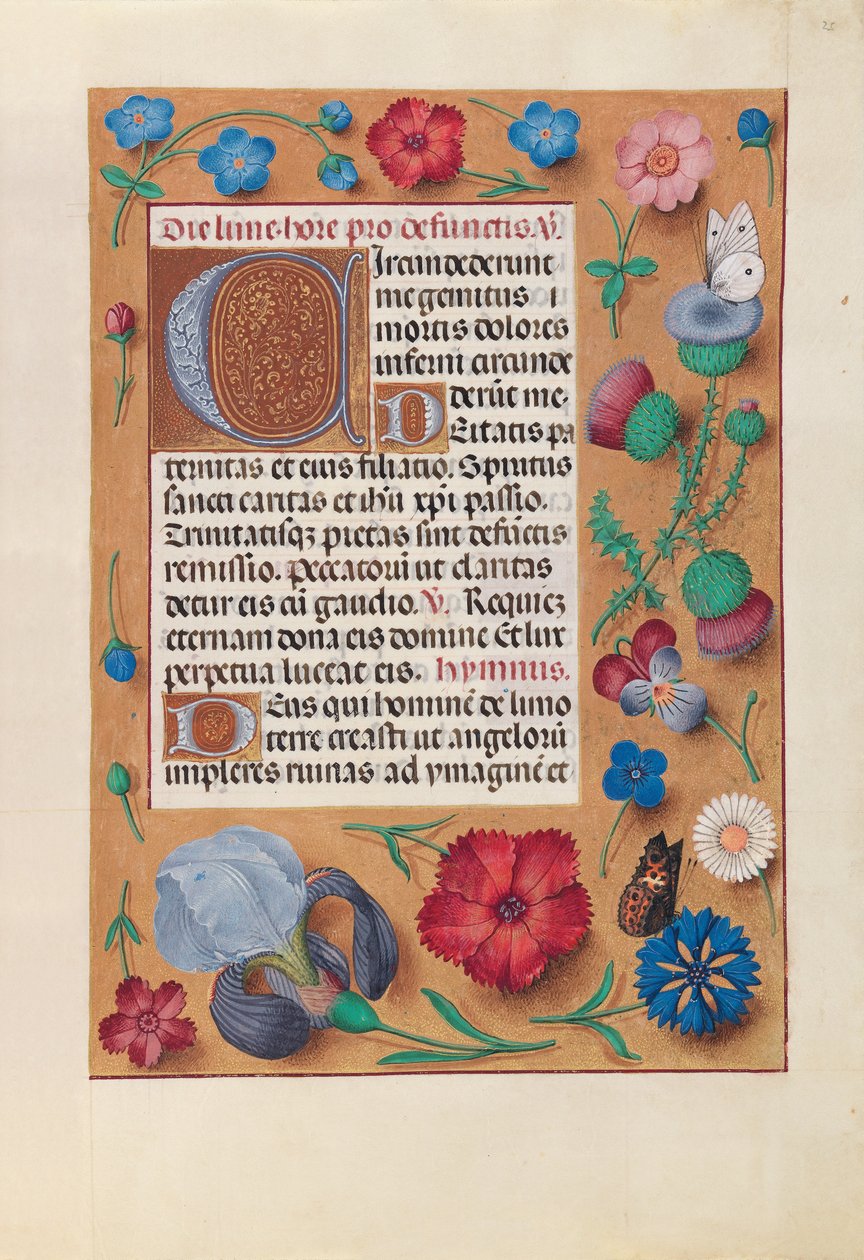 25
Die lune. hore pro defunctis. V̓.
Circundederunt
me gemitus
mortis dolores
inferni circunde
derūt me.
Deitatis pa
ternitas et eius filiatio. Spiritus
sancti caritas et ihū xp̄i passio.
Trinitatisqꝫ pietas sint defūctis
remissio. Peccatorū ut claritas
detur eis cū gaudio. V̓. Requiē
eternam dona eis domine Et lux
perpetua luceat eis. hymnus.
Deus qui hominē de limo
terre creasti ut angelorū
impleres ruinas ad ymaginē et